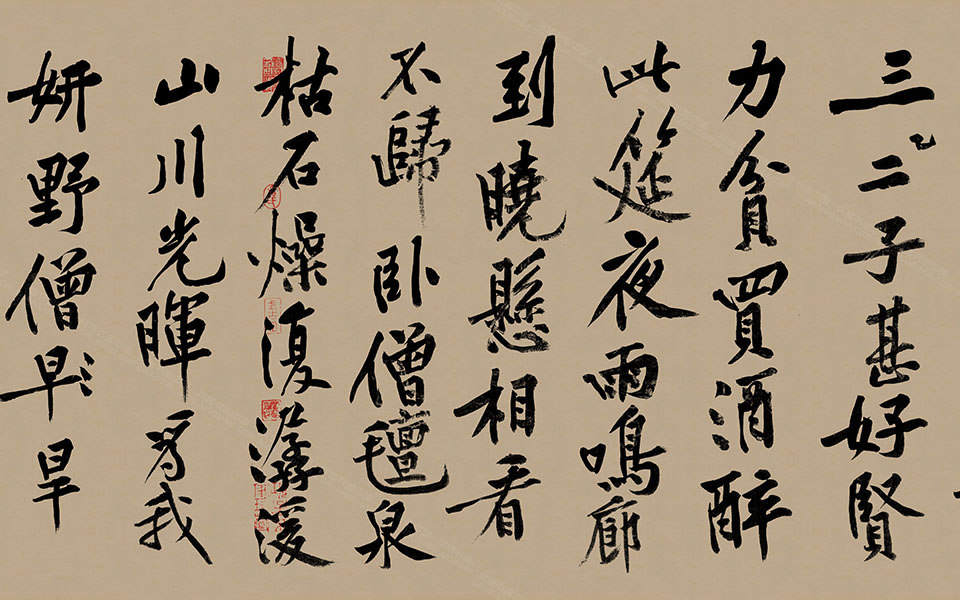 三二子甚好賢
力貧買酒醉
此筵夜雨鳴廊
到曉懸相看
不歸臥僧氊泉
枯石燥復潺湲
山川光暉為我
妍野僧早旱